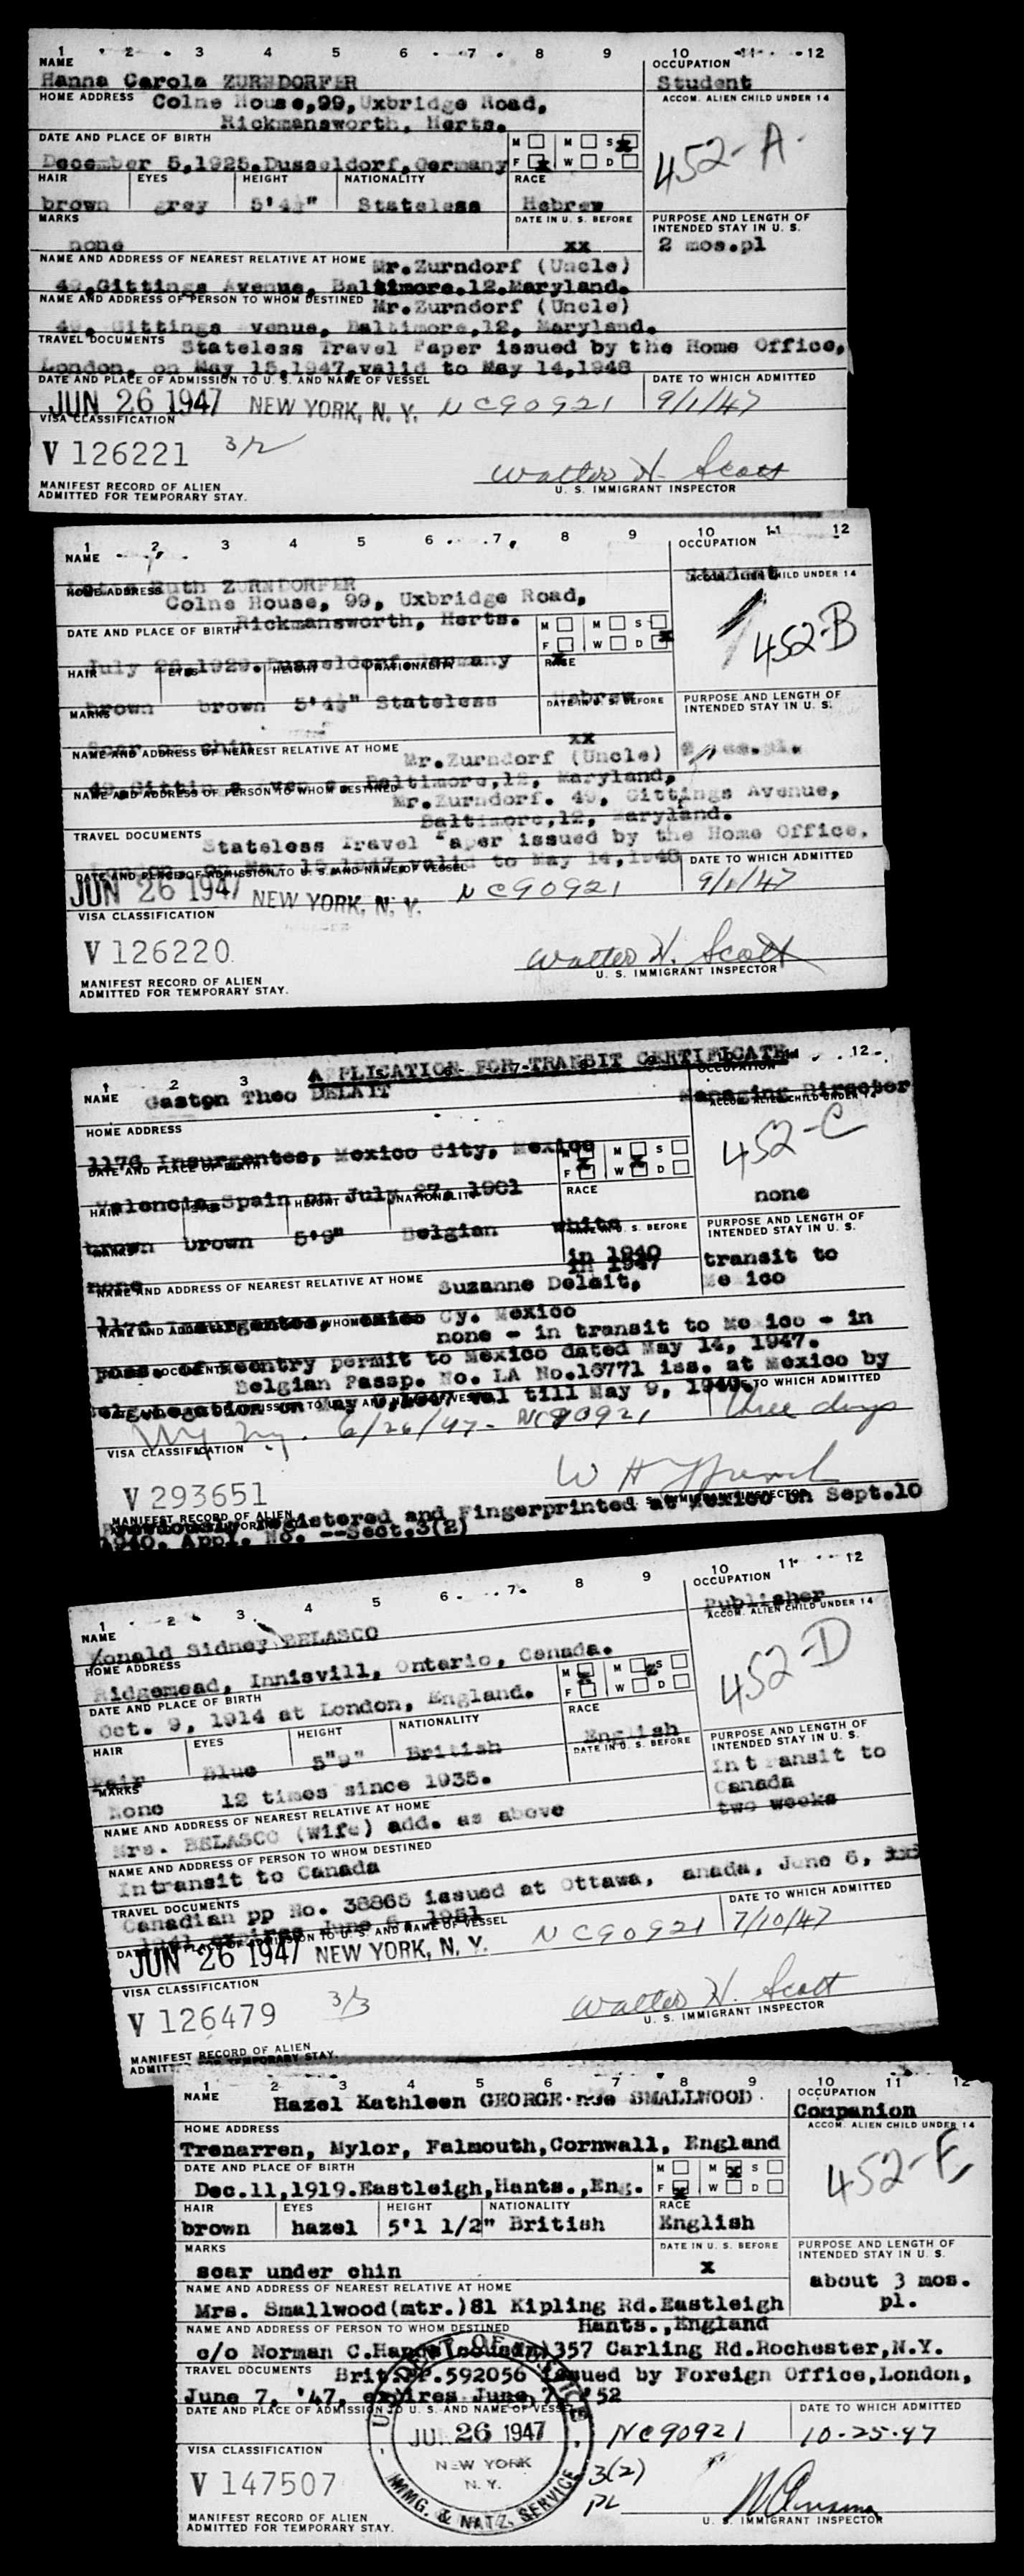 1 2 3 4 5 6 7 8 9 10 11 12
NAME OCCUPATION
Hanna Carola ZURNDORFER Student
HOME ADDRESS Colne House,99,Uxbridge Road, ACCOM. ALIEN CHILD UNDER 14
Rickmansworth, Herts.
DATE AND PLACE OF BIRTH M M S 452-A
December 5,1925.Dusseldorf,Germany F W D
HAIR EYES HEIGHT NATIONALITY RACE
brown grey 5'4½" Stateless Hebrew
MARKS DATE IN U. S. BEFORE PURPOSE AND LENGTH OF INTENDED STAY IN U. S.
none xx 2 mos.pl
NAME AND ADDRESS OF NEAREST RELATIVE AT HOME Mr.Zurndorf (Uncle)
49,Gittings Avenue, Baltimore.12.Maryland.
NAME AND ADDRESS OF PERSON TO WHOM DESTINED Mr.Zurndorf (Uncle)
49, Gittings Avenue, Baltimore,12, Maryland.
TRAVEL DOCUMENTS Stateless Travel Paper issued by the Home Office,
London, on May 15,1947,valid to May 14,1948
DATE AND PLACE OF ADMISSION TO U. S. AND NAME OF VESSEL DATE TO WHICH ADMITTED
JUN 26 1947 NEW YORK, N. Y. NC90921 9/1/47
VISA CLASSIFICATION
V 126221 3/2
Walter H. Scott
MANIFEST RECORD OF ALIEN U. S. IMMIGRANT INSPECTOR
ADMITTED FOR TEMPORARY STAY.
1 2 3 4 5 6 7 8 9 10 11 12
NAME OCCUPATION
Ruth ZURNDORFER Student
HOME ADDRESS Colne House, 99, Uxbridge Road, ACCOM. ALIEN CHILD UNDER 14
DATE AND PLACE OF BIRTH Rickmansworth, Herts. M M S 452-B
F W D
July 26,1929.Dusseldorf,Germany
HAIR EYES HEIGHT NATIONALITY RACE
brown brown 5'4½" Stateless Hebrew
MARKS DATE IN U. S. BEFORE PURPOSE AND LENGTH OF INTENDED STAY IN U. S.
scar chin xx
NAME AND ADDRESS OF NEAREST RELATIVE AT HOME Mr.Zurndorf (Uncle) 2 mos.pl.
49,Gittings Avenue, Baltimore,12, Maryland,
NAME AND ADDRESS OF PERSON TO WHOM DESTINED Mr.Zurndorf. 49, Gittings Avenue,
Baltimore,12, Maryland.
TRAVEL DOCUMENTS Stateless Travel Paper issued by the Home Office,
London on May 15,1947,valid to May 14,1948
DATE AND PLACE OF ADMISSION TO U. S. AND NAME OF VESSEL DATE TO WHICH ADMITTED
JUN 26 1947 NEW YORK, N. Y. NC90921 9/1/47
VISA CLASSIFICATION
V 126220
Walter H. Scott
MANIFEST RECORD OF ALIEN U. S. IMMIGRANT INSPECTOR
ADMITTED FOR TEMPORARY STAY.
APPLICATION FOR TRANSIT CERTIFICATE
1 2 3 5 6 7 8 9 12
NAME Gaston Theo DELAIT OCCUPATION Managing Director
HOME ADDRESS ACCOM. ALIEN CHILD UNDER 14
1176 Insurgentes, Mexico City, Mexico 452-C
DATE AND PLACE OF BIRTH M M S
Valencia,Spain on July 27, 1901 F W D
HAIR EYES HEIGHT NATIONALITY RACE none
brown brown 5'9" Belgian white
MARKS DATE IN U. S. BEFORE PURPOSE AND LENGTH OF INTENDED STAY IN U. S.
none in 1940 transit to
in 1947 Mexico
NAME AND ADDRESS OF NEAREST RELATIVE AT HOME Suzanne Delait,
1176 Insurgentes, Mexico Cy. Mexico
NAME AND ADDRESS OF PERSON TO WHOM DESTINED none - in transit to Mexico - in
poss. of Reentry permit to Mexico dated May 14, 1947.
TRAVEL DOCUMENTS Belgian Passp. No. LA No.16771 iss. at Mexico by
Belg.Legation on May 9,1947 val till May 9, 1949.
DATE AND PLACE OF ADMISSION TO U. S. AND NAME OF VESSEL DATE TO WHICH ADMITTED
NY NY. 6/26/47- NC90921 three days
VISA CLASSIFICATION
V 293651
W H
MANIFEST RECORD OF ALIEN U. S. IMMIGRANT INSPECTOR
Previously registered and Fingerprinted at Mexico on Sept.10
1940. Appl. No. --Sect.3(2)
1 2 3 4 5 6 7 8 9 10 11 12
NAME OCCUPATION
Ronald Sidney BELASCO Publisher
HOME ADDRESS ACCOM. ALIEN CHILD UNDER 14
Ridgemead, Innisvill, Ontario, Canada.
DATE AND PLACE OF BIRTH M M S 452-D
Oct. 9, 1914 at London, England. F W D
HAIR EYES HEIGHT NATIONALITY RACE
Fair Blue 5"9" British English
MARKS DATE IN U. S. BEFORE PURPOSE AND LENGTH OF INTENDED STAY IN U. S.
None 12 times since 1935. Intransit to
Canada
two weeks
NAME AND ADDRESS OF NEAREST RELATIVE AT HOME
Mrs. BELASCO (Wife) add. as above
NAME AND ADDRESS OF PERSON TO WHOM DESTINED
Intransit to Canada
TRAVEL DOCUMENTS
Canadian pp No. 38865 issued at Ottawa, Canada, June 6,
expires June 6, 1951
DATE AND PLACE OF ADMISSION TO U. S. AND NAME OF VESSEL DATE TO WHICH ADMITTED
JUN 26 1947 NEW YORK, N. Y. NC90921 7/10/47
VISA CLASSIFICATION
V 126479 3/3
Walter H. Scott
MANIFEST RECORD OF ALIEN U. S. IMMIGRANT INSPECTOR
ADMITTED FOR TEMPORARY STAY.
1 2 3 4 5 6 7 8 9 10 11 12
NAME Hazel Kathleen GEORGE nee SMALLWOOD OCCUPATION
Companion
HOME ADDRESS ACCOM. ALIEN CHILD UNDER 14
Trenarren, Mylor, Falmouth,Cornwall, England
DATE AND PLACE OF BIRTH M M S 452-E
Dec.11,1919.Eastleigh,Hants.,Eng. F W D
HAIR EYES HEIGHT NATIONALITY RACE
brown hazel 5'1 1/2" British English
MARKS DATE IN U. S. BEFORE PURPOSE AND LENGTH OF INTENDED STAY IN U. S.
scar under chin x about 3 mos.
NAME AND ADDRESS OF NEAREST RELATIVE AT HOME pl.
Mrs. Smallwood(mtr.)81 Kipling Rd.Eastleigh
NAME AND ADDRESS OF PERSON TO WHOM DESTINED Hants.,England
c/o Norman C. (cousin)357 Carling Rd.Rochester,N.Y.
TRAVEL DOCUMENTS Brit.PP.592056 issued by Foreign Office,London,
June 7, '47, expires June 7, '52
DATE AND PLACE OF ADMISSION TO U. S. AND NAME OF VESSEL DATE TO WHICH ADMITTED
JUN 26 1947 NC90921 10-25-47
VISA CLASSIFICATION NEW YORK N. Y. 3(2)
V 147507 PL
IMMG. & NATZ. SERVICE
MANIFEST RECORD OF ALIEN U. S. IMMIGRANT INSPECTOR
ADMITTED FOR TEMPORARY STAY.